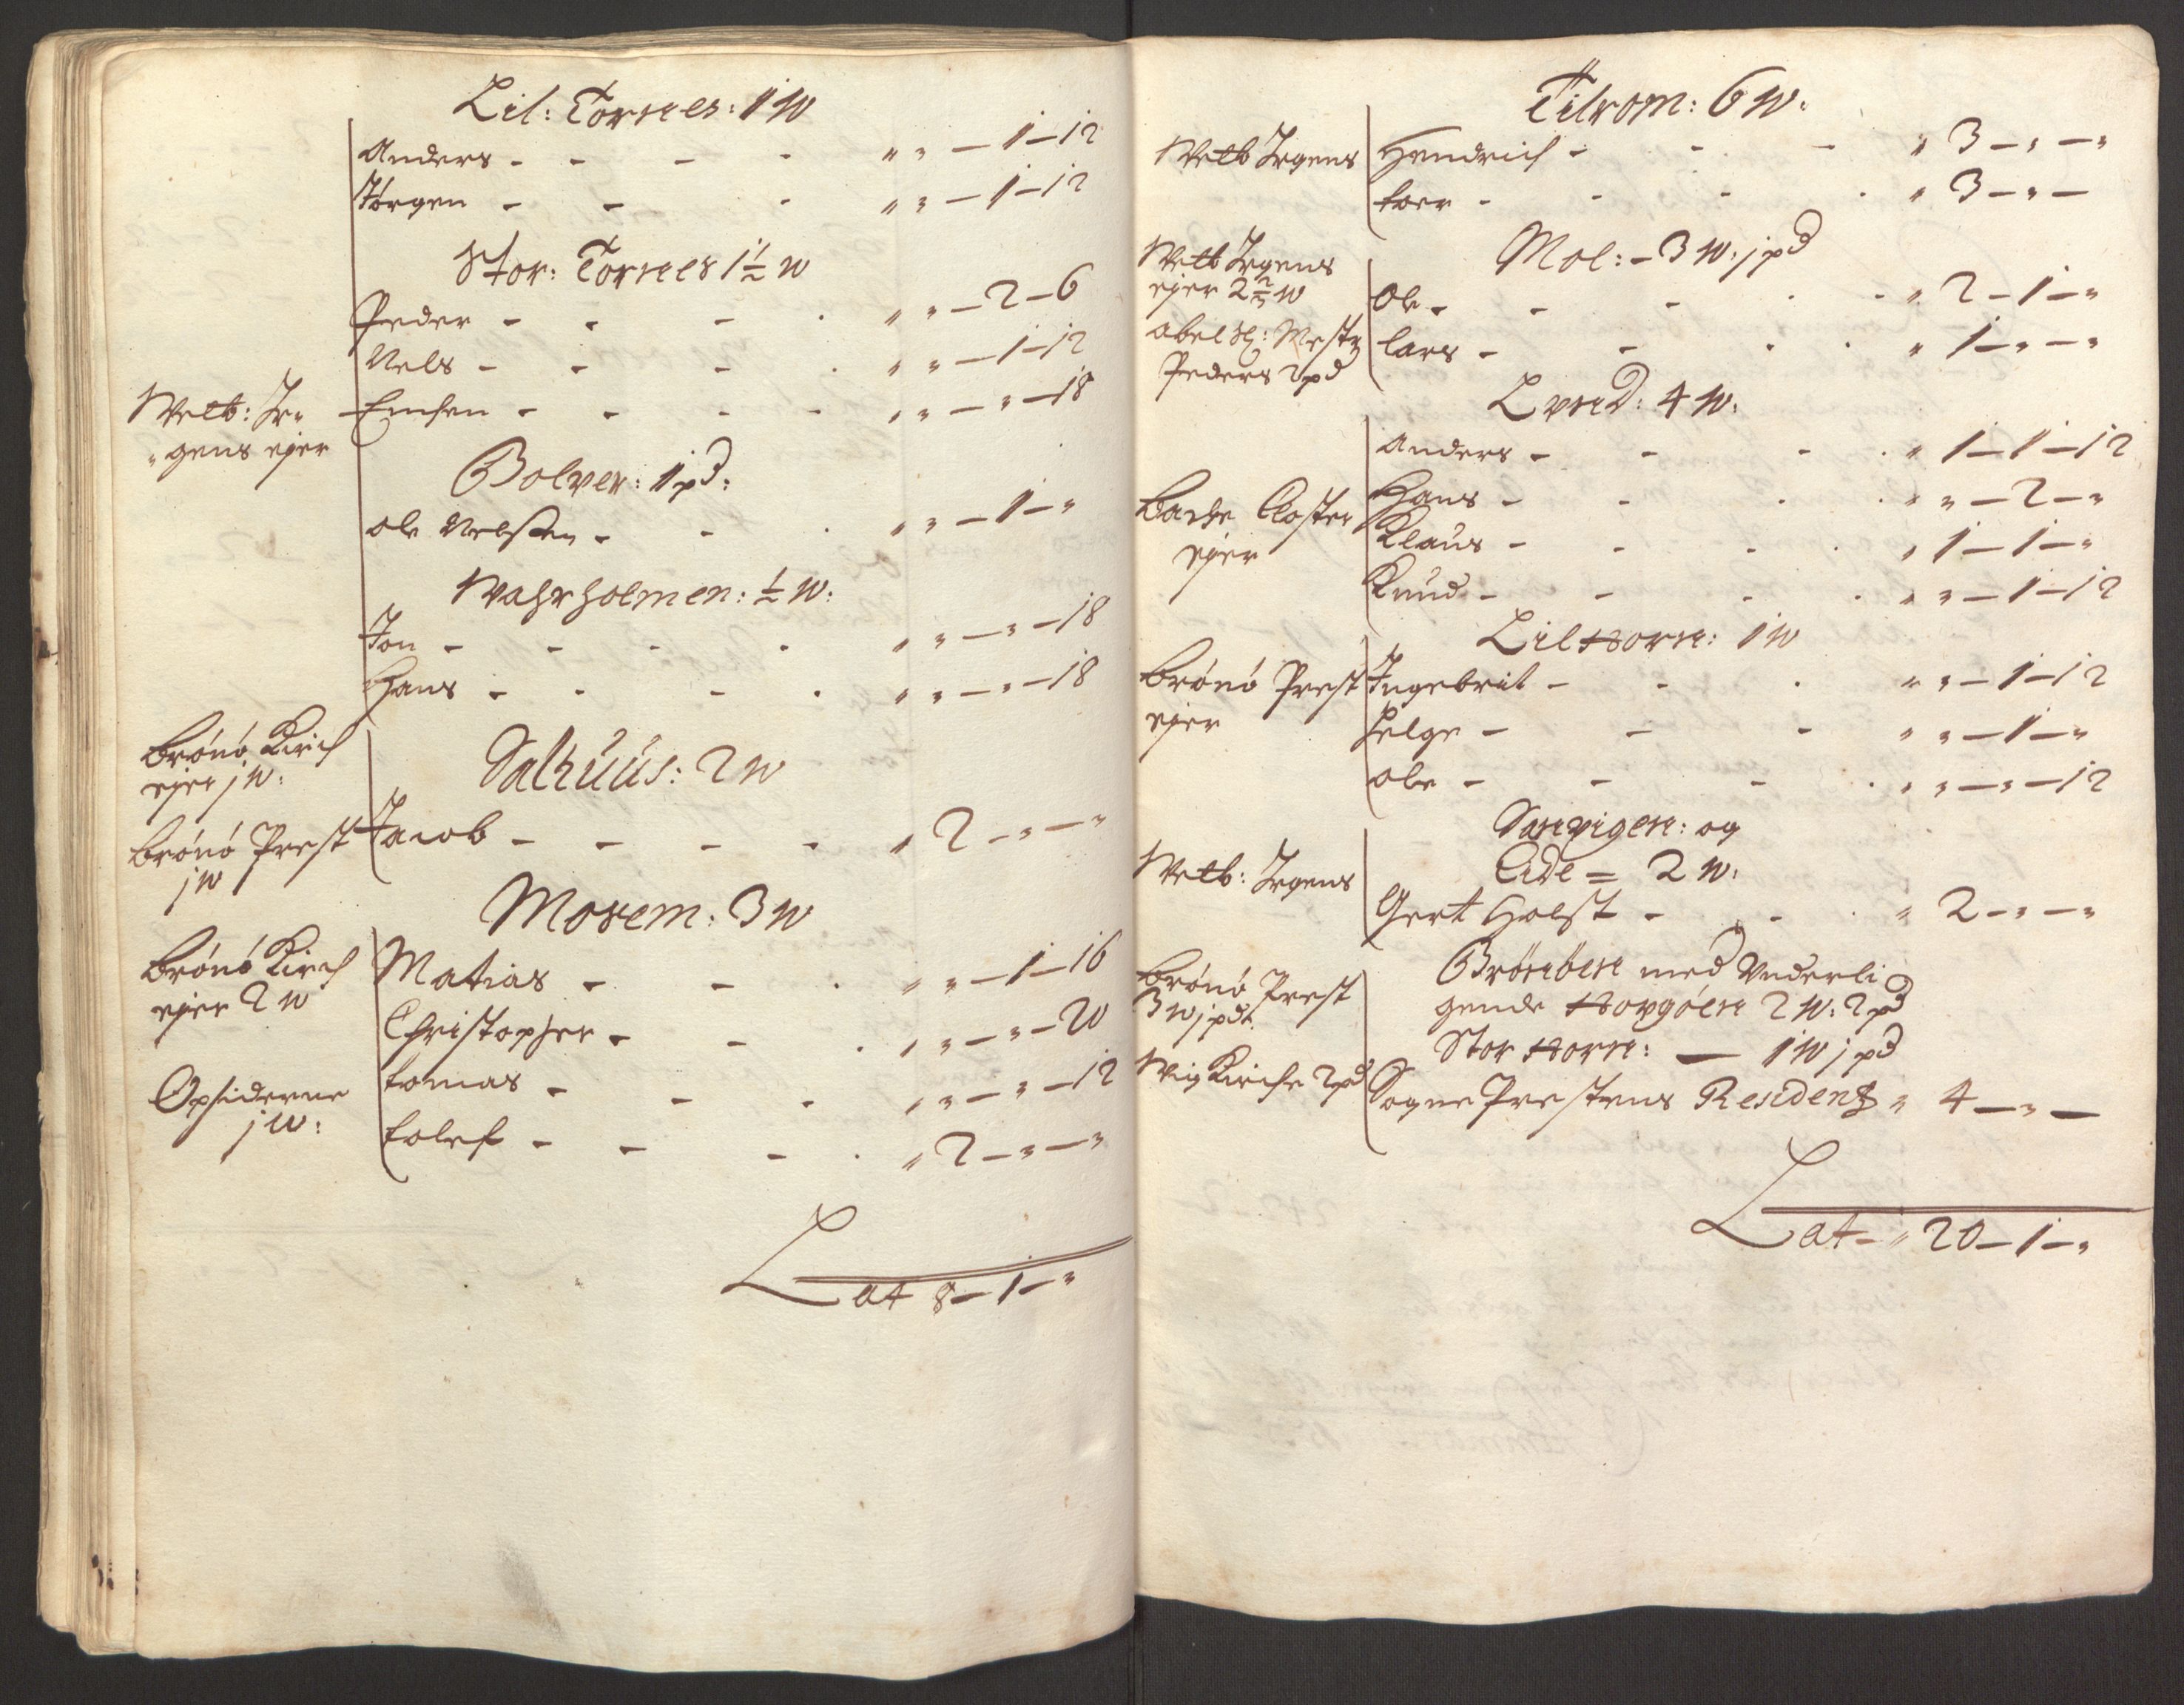 Lil: Tornes: 1 W
Anders - - - - " " - 1 - 12
Jørgen - - - " " - 1 - 12
Stor: Tornes 1½ W
Peder - - - - " " - 2 - 6
Nels - - - - " " - 1 - 12
Metb: Jr=
=gens ejer
- - - - " " - " - 18
Bolver: 1 pd:
ole Nelssen - - - " " - 1 - "
Wahrholmen: ½ W:
Jon - - - - " " - " - 18
Hans - - - - " " - " - 18
Brønø Kirch
ejer j W:
Salhuus: 2 W
Brønø Prest
j W
Jacob - - - - " 2 - " - "
Morem: 3 W
Brønø Kirch
ejer 2 W
Matias - - - " " - 1 - 16
Christopher - - - " " - " - 20
Opsiderne
j W:
tomas - - - " " - " - 12
tolef - - - - " 2 - " - "
Lat 8 - 1 - "
Tilrom: 6 W:
Metb Irgens
Hendrich - - - " 3 - " - "
toer - - - - " 3 - " -
Mol: - 3 W: j pd
Metb Irgens
ejer 2⅔ W
Ole - - - - - " 2 - 1 - "
abel Sl: Mestr
Peders 2 pd
lars - - - - " 1 - " - "
Lund: 4 W:
Anders - - - - " 1 - 1 - 12
Bache Closter
ejer
Hans - - - - " " - 2 - "
Klaus - - - - " 1 - 1 - "
Knud - - - - " " - 1 - 12
Lil Horn: 1 W
Brønø Prest
ejer
Ingebrit - - - " " - 1 - 12
Helge - - - " " - 1 - "
ole - - - - " " - " - 12
Sanvigen: og
Metb: Irgens
Eide = 2 W:
Gert Holst - - - " 2 - " - "
Brønø Prest
3 W j pdt.
Brønøen med Underli
gende Horgøen 2 W: 2 pd
Stor Horn: - 1 W j pd
Wig Kirche 2 pd
Sogne Prestens Residentz " 4 - " -
Lat - " 20 - 1 - "